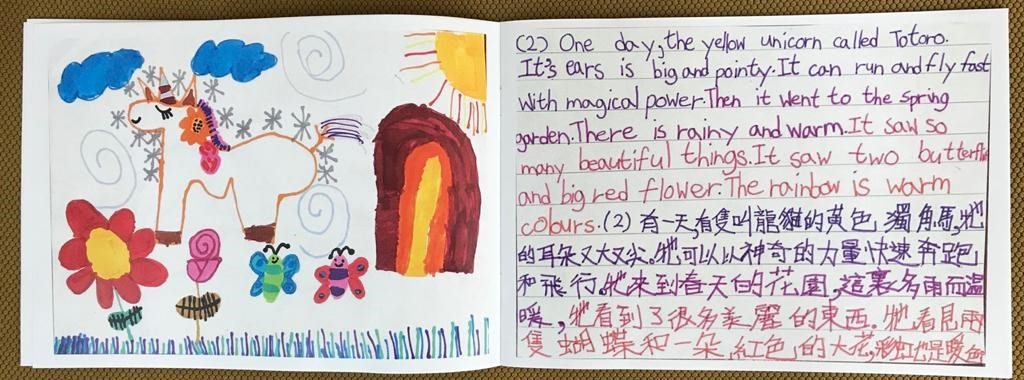 (2) One day, the yellow unicorn called Totoro.
It's ears is big and pointy. It can run and fly fast
with magical power. Then it went to the spring
garden. There is rainy and warm. It saw so
many beautiful things. It saw two butterflies
and big red flower. The rainbow is warm
colours. (2) 有一天,有隻叫龍貓的黃色獨角馬,牠
的耳朵又大又尖。牠可以以神奇的力量快速奔跑
和飛行。牠來到春天的花園,這裏多雨而溫
暖,牠看到了很多美麗的東西。牠看見兩
隻蝴蝶和一朵紅色的大花,彩虹也是暖色